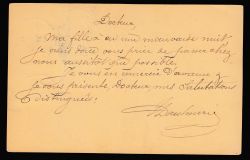 Docteur
Ma fille a eu une mauvaise nuit
je viens donc vous prier de passer chez
nous aussitôt que possible.
Je vous en remercie d'avance &
je vous présente, Docteur, mes salutations
distinguées.